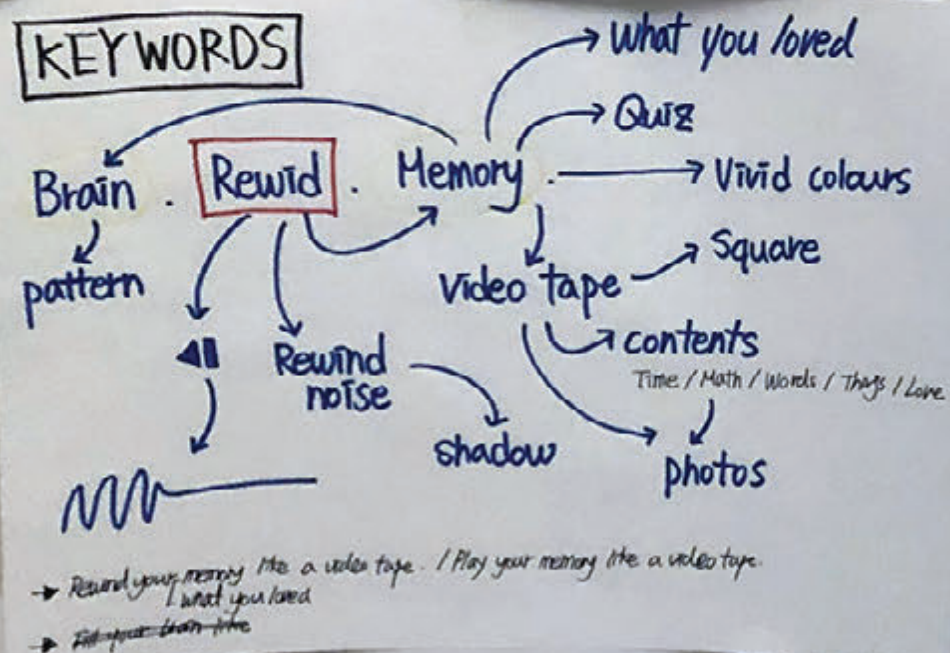 KEYWORDS
What you loved
Quiz
Brain . Rewid . Memory .
Vivid colours
pattern
Video tape
Square
contents
Time / Math / Words / Thngs / Love
Rewind
noise
shadow
photos
Rewind your memory like a video tape. / Play your memory like a video tape.
/ what you loved